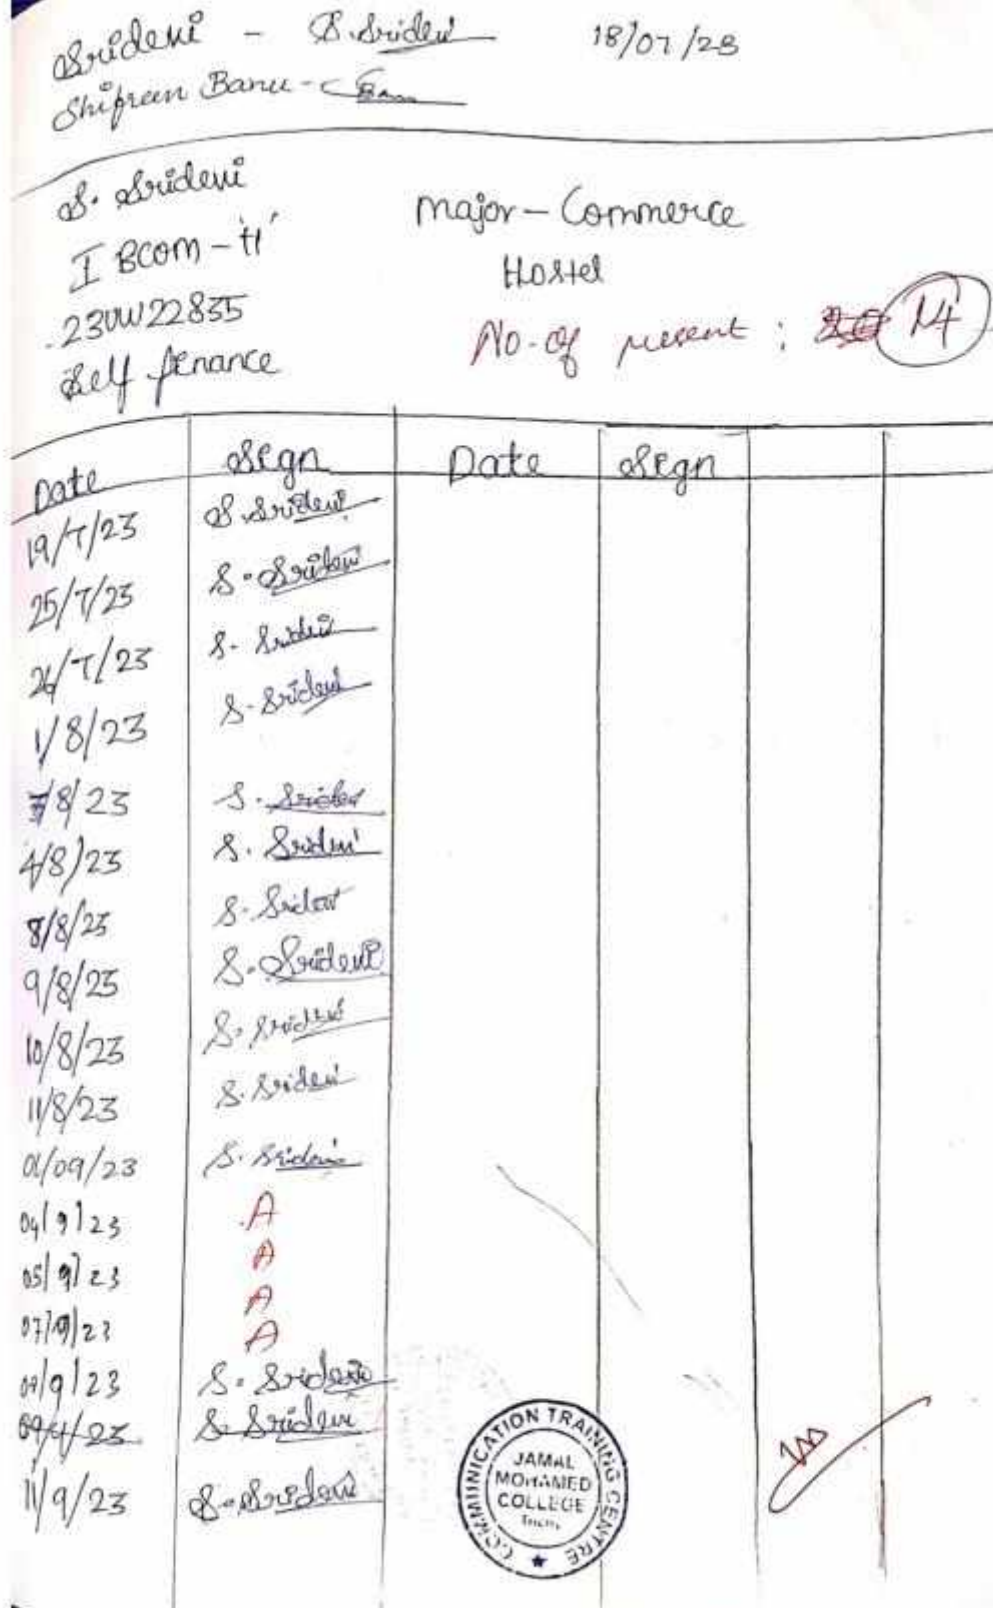 Sridevi - S.Sridevi 18/07/23
Shifreen Banu -
S. Sridevi
I BCOM - 'H'
23UW22835
Self finance
Major - Commerce
Hostel
No. of present : 14
Date Sign Date Sign
19/7/23 S.Sridevi
25/7/23 S. Sridevi
26/7/23 S. Sridevi
1/8/23 S. Sridevi
3/8/23 S. Sridevi
4/8/23 S. Sridevi
8/8/23 S. Sridevi
9/8/23 S. Sridevi
10/8/23 S. Sridevi
11/8/23 S. Sridevi
01/09/23 S. Sridevi
04/9/23 A
05/9/23 A
07/9/23 A
A
09/9/23 S. Sridevi
S. Sridevi
11/9/23 S. Sridevi
COMMUNICATION TRAINING CENTRE
JAMAL
MOHAMED
COLLEGE